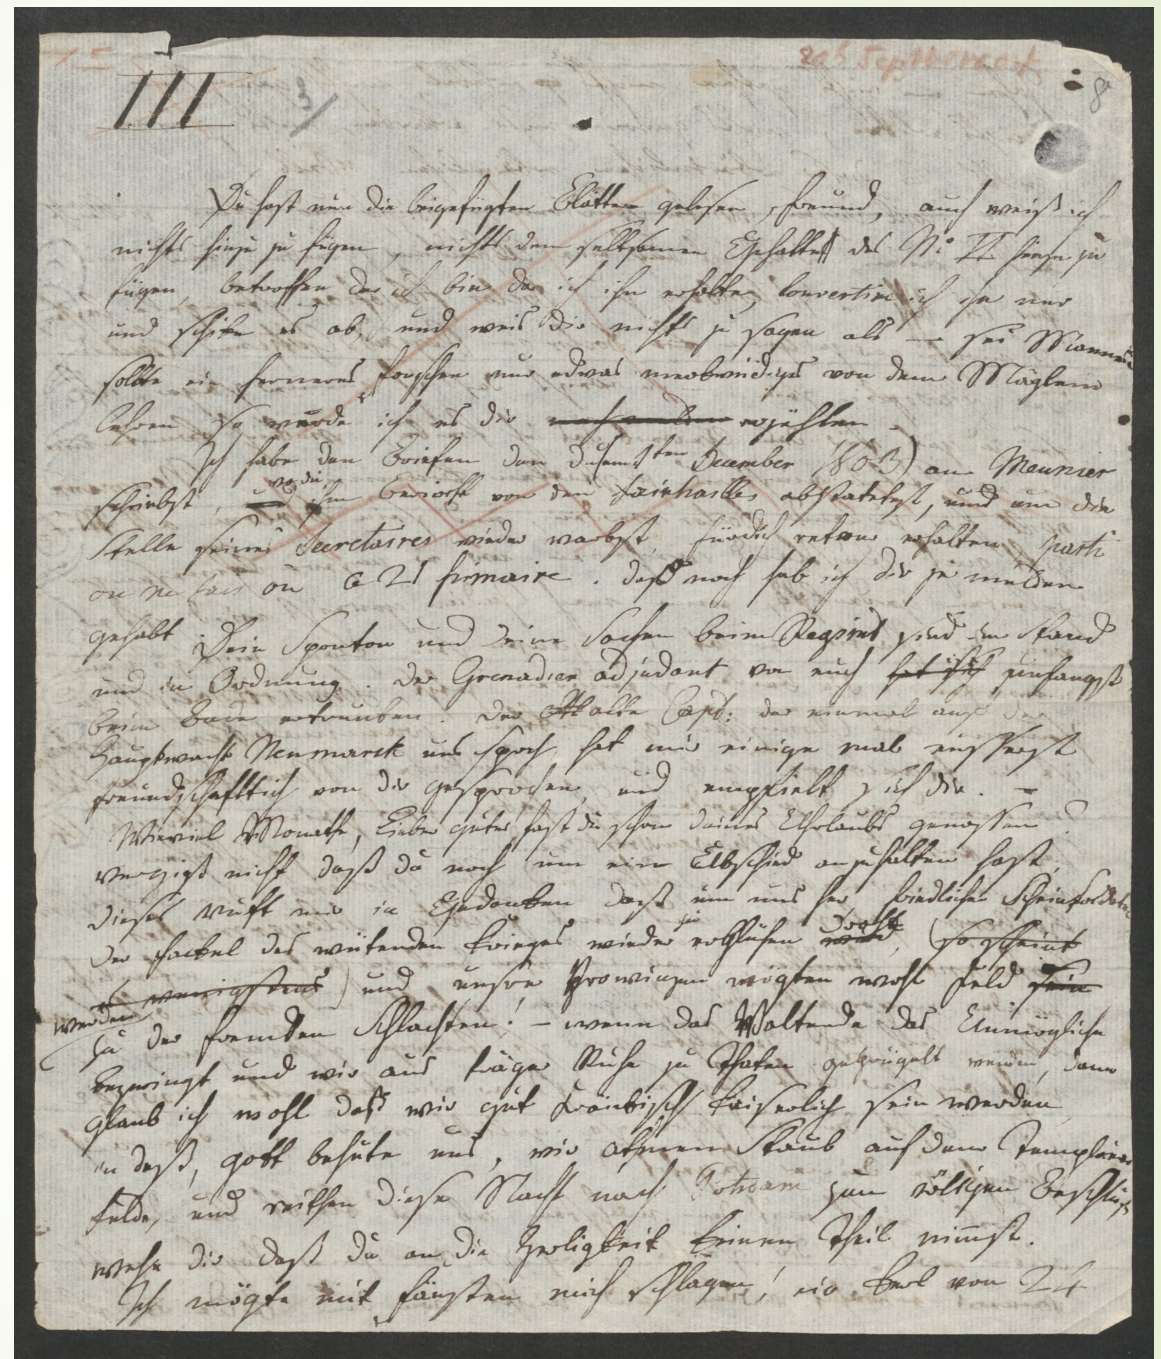 III
3
8
20t September 04
Du hast nun die beigefügten Blätter gelesen, Freund, auch weiß ich
nichts hinzu zu fügen, nichts dem seltsamen Gehalte des N: II hinzu zu
fügen, betroffen der ich bin da ich ihn erhalte, couvertire ich ihn nur
und schike es ab, und weis Dir nichts zu sagen als — sei Mann
sollte ein ferneres forschen nur etwas merkwürdiges von dem Mäglein
lehren so würde ich es dir erzählen.
Ich habe den Briefen den December 1803) an Meunier
schriebst, wo du ihm Bericht von den abstatetest, und um die
Stelle seines Secretaires wieder warbst, für dich retour erhalten, parti
on ne sait ou ce 21 frimaire. Daß noch hab ich dir zu melden
gehabt. Dein Sponton und deine Sachen beim Regimt sind im Stand
und in Ordnung. Der Grenadier adjudant von euch ist jüngst
beim Bade ertrunken. Der alte Capt: der einmal auf der
Hauptwacht Neumarck uns sprach, hat mir einige mal eusserst
freundschafttlich von dir gesprochen, und empfielt sich dir. —
Wieviel Monathe, Lieber guter, hast du schon deines Uhrlaubs genossen?
vergiß nicht daß du noch um ein Abschied anzuhalten hast,
dieses ruft mir in Gedanken daß um uns her friedliche Scheinsoldaten
der Fackel des wütenden Krieges wieder zu erglühen droht, (so scheint
es wenigstens) und unsre Prowinzen mögten wohl Feld sein
werden
zu der fremden Schlachten! — wenn das Waltende das Unmögliche
bezwingt und wir aus träger Ruhe zu Thaten geprügelt werden, dann
glaub ich wohl daß wir gut fränkisch kaiserlich sein werden
in deß, gott behüte uns, wir athmen Staub auf dem Templower
felde, und reithen diese Nacht nach Potsdam zum völligen Beschluß
wohl dir daß du an die Herligkeit keinen Theil nimst.
Ich mögte mit Fäusten mich schlagen, ein Kerl von 24